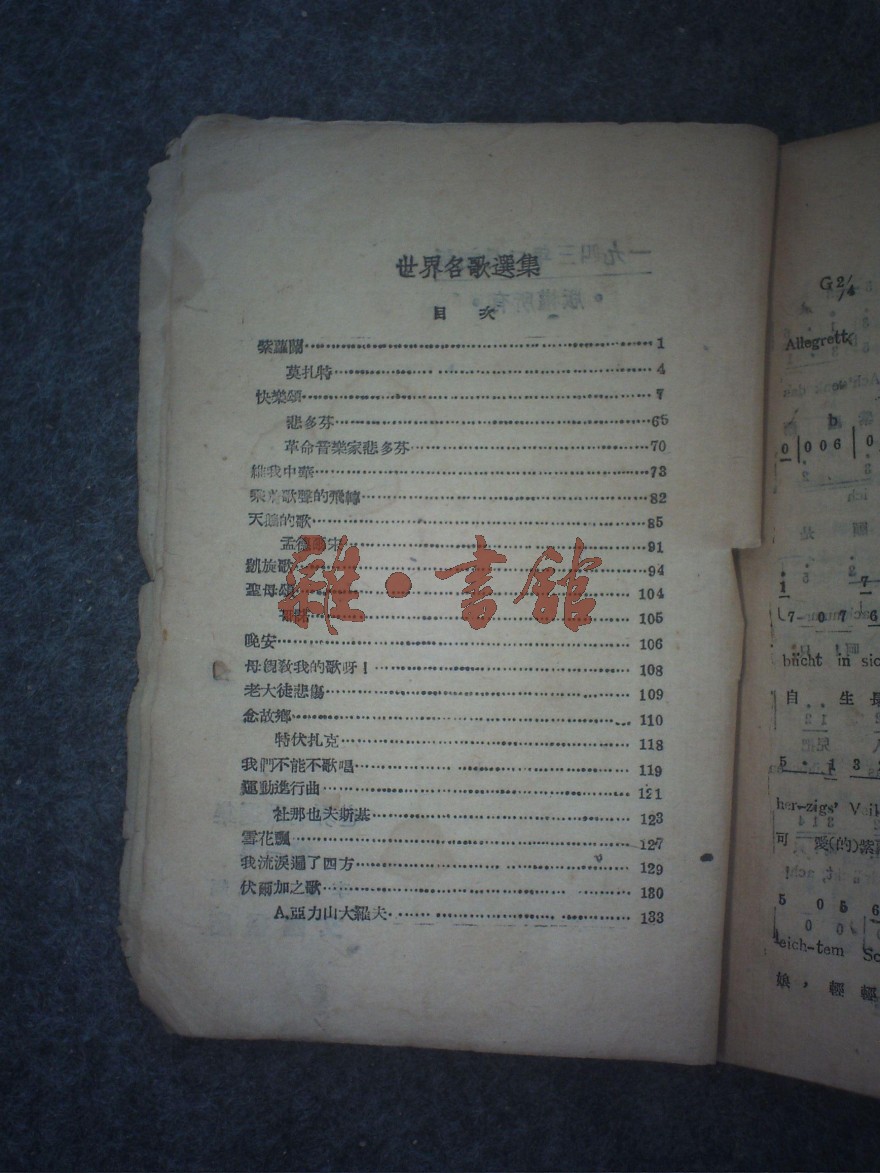 世界名歌選集
目 次
紫蘿蘭 1
莫扎特 4
快樂頌 7
悲多芬 65
革命音樂家悲多芬 70
維我中華 73
乘着歌聲的飛轉 82
天鵝的歌 85
孟德爾宋 91
凱旋歌 94
聖母頌 104
105
晚安 106
母親敎我的歌呀！ 108
老大徒悲傷 109
念故鄉 110
特伏扎克 118
我們不能不歌唱 119
運動進行曲 121
杜那也夫斯基 123
雪花飄 127
我流淚遍了四方 129
伏爾加之歌 130
A.亞力山大羅夫 133
雜·書館
G 2/4
Allegrett
0 0 0 6 0
bücht in sic
自 生 長
herzigs' Veil
可 愛(的)紫
5 0 5 6
0 0
leich-tem Sc
娘，輕輕